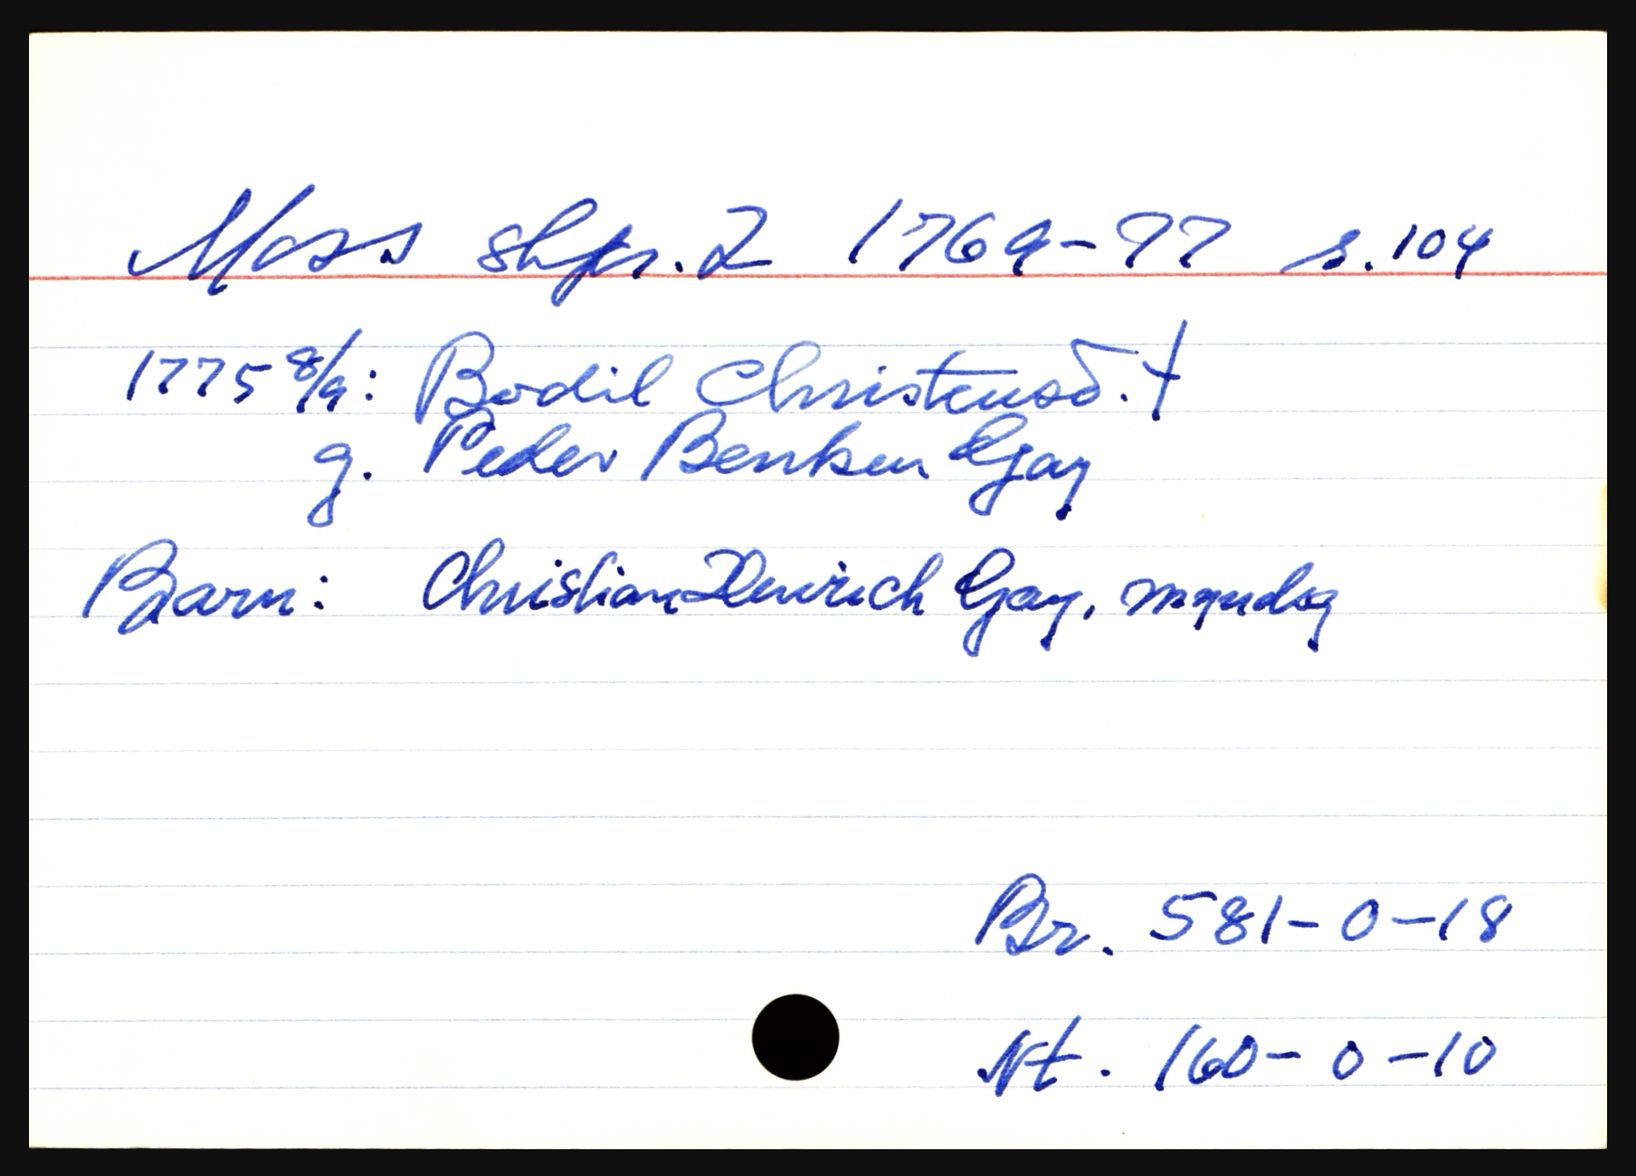 Moss skpr. 2 1769-77 s. 104
1775 8/9: Bodil Christensd. †
g. Peder Bentsen Gay
Barn: Christian Henrich Gay, myndig
Br. 581-0-18
Nt. 160-0-10